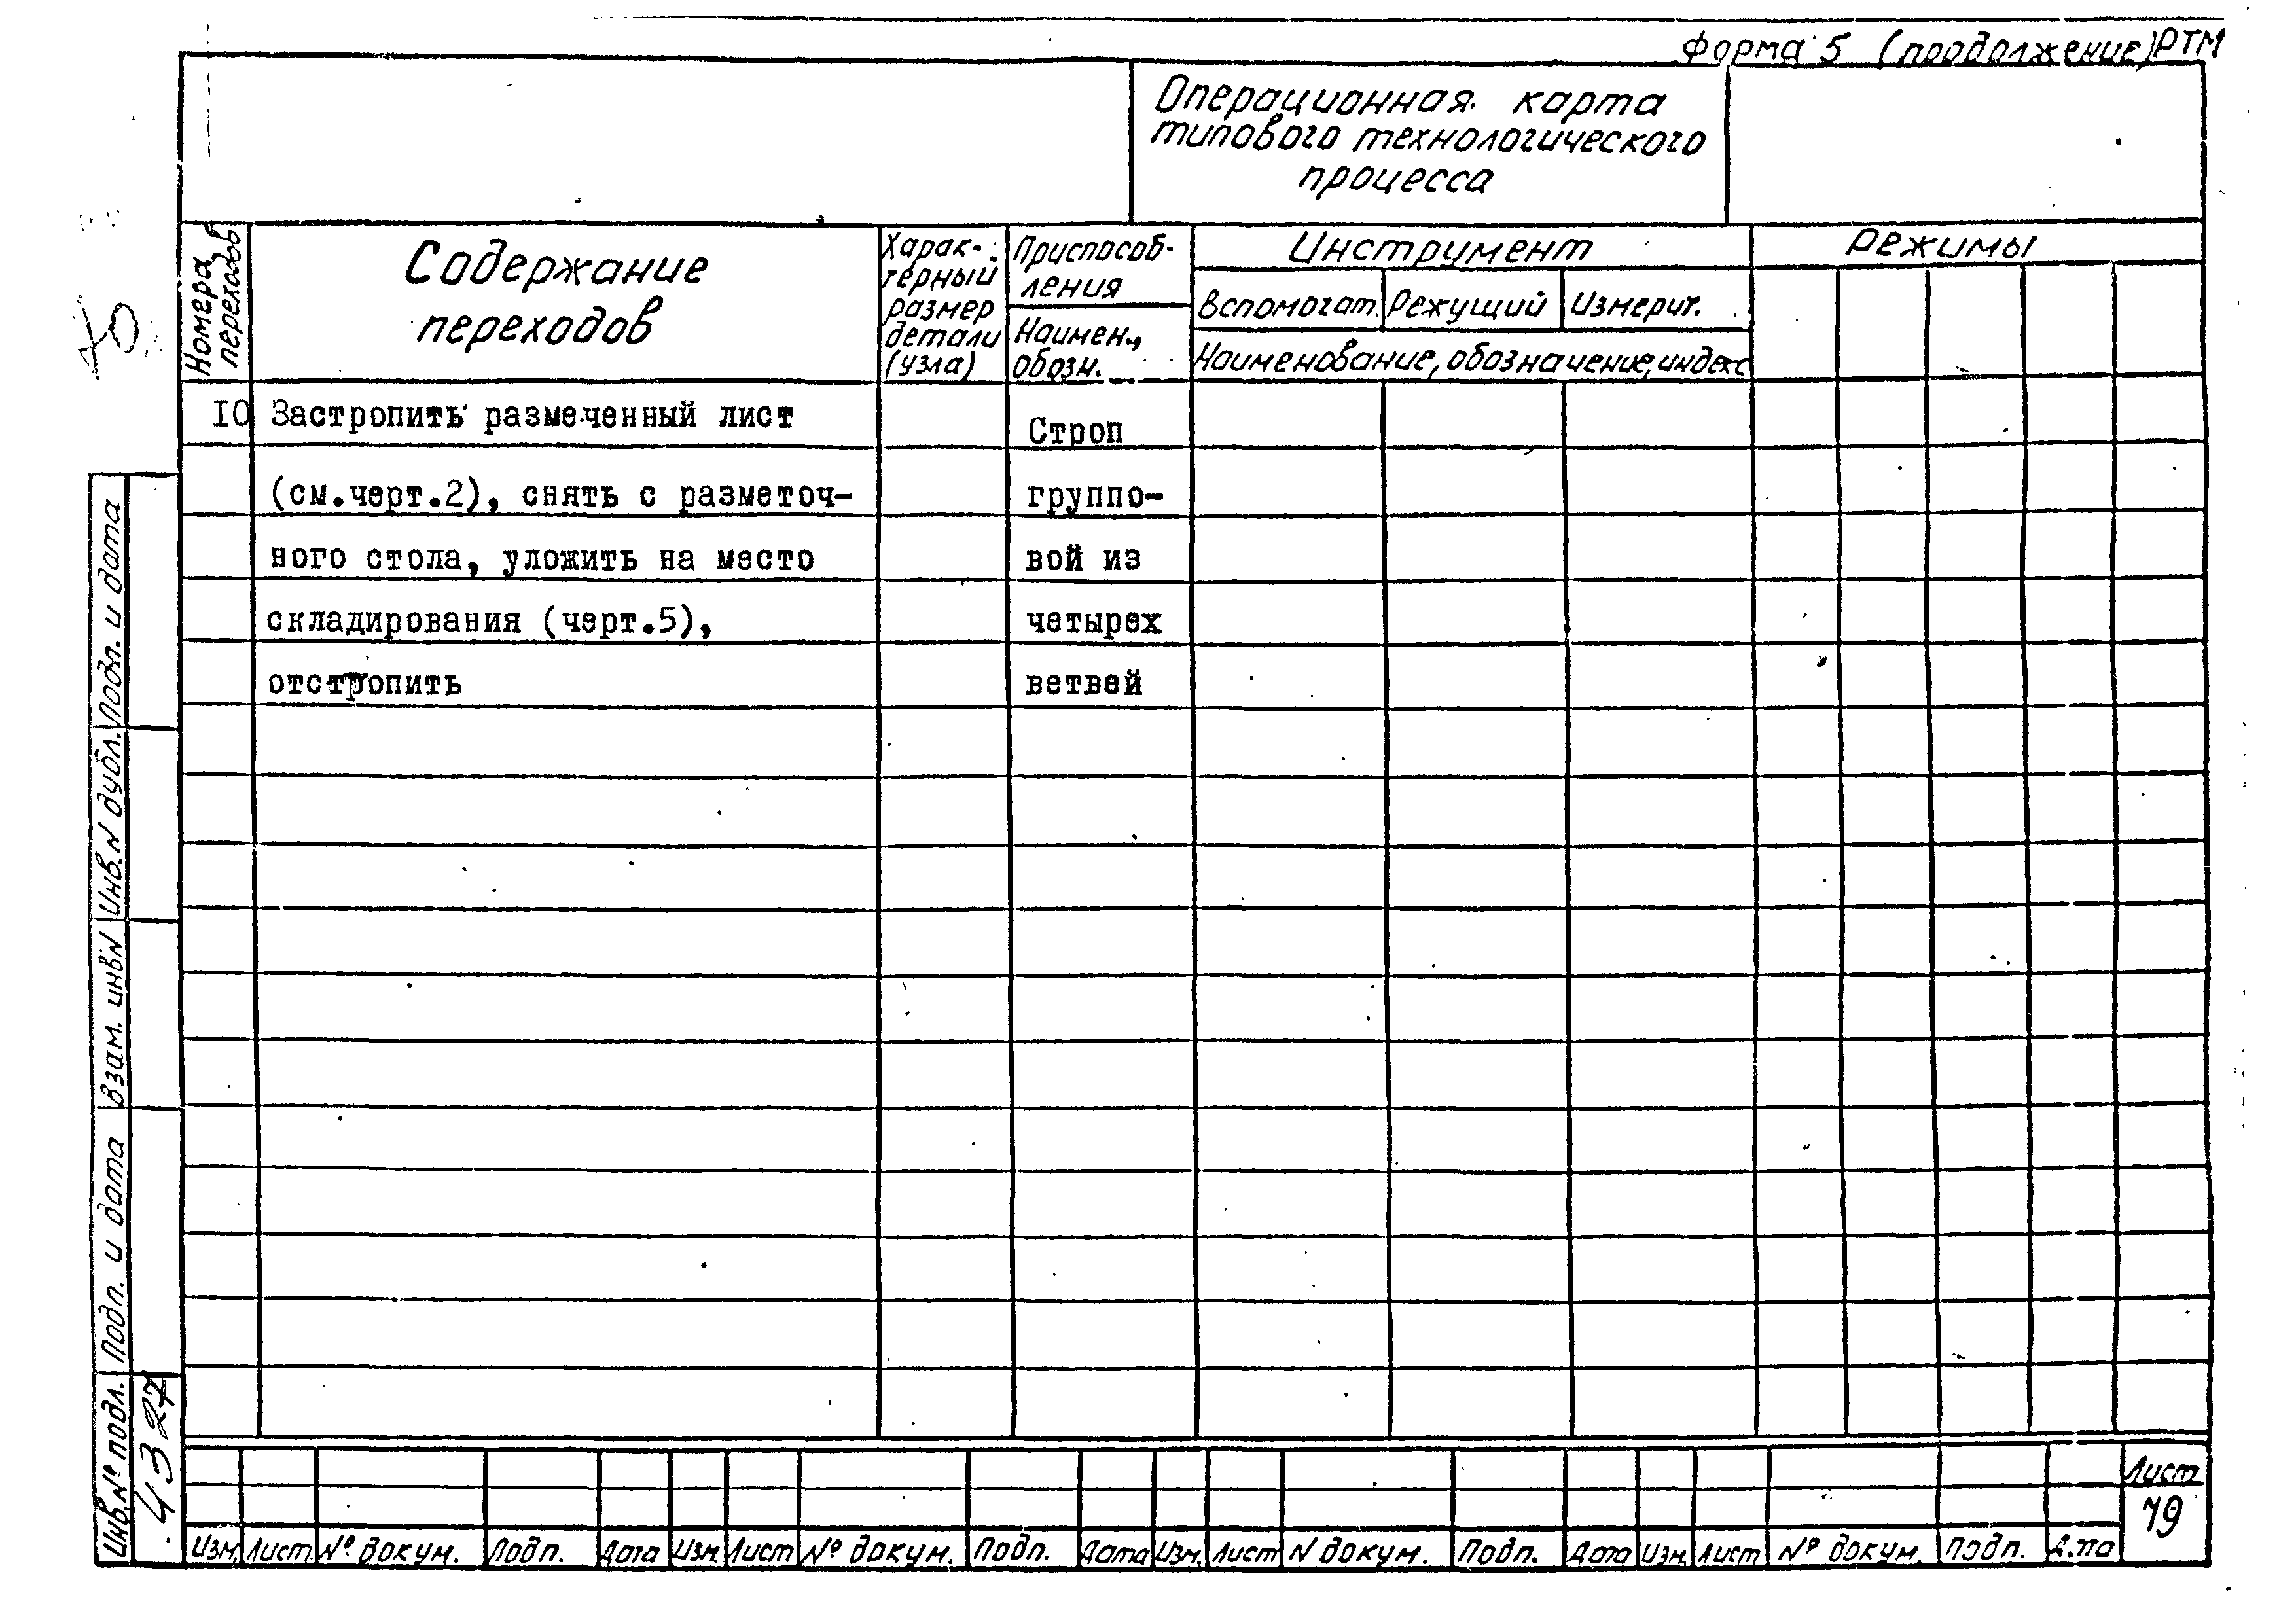 Форма 5 (продолжение) РТМ
Операционная карта
типового технологического
процесса
Номера
переходов
Содержание
переходов
Харак-
терный
размер
детали
(узла)
Приспособ-
ления
Наимен.,
обозн.
Инструмент
Вспомогат. Режущий Измерит.
Наименование, обозначение, индекс
Режимы
10 Застропить размеченный лист
(см.черт.2), снять с разметоч-
ного стола, уложить на место
складирования (черт.5),
отстропить
Строп
группо-
вой из
четырех
ветвей
Подп. и дата
Инв.N дубл.
Взам. инв.N
Подп. и дата
Инв.№ подл.
4327
Изм. Лист № докум. Подп. Дата Изм. Лист № докум. Подп. Дата Изм. Лист N докум. Подп. Дата Изм. Лист № докум. Подп. Дата
Лист